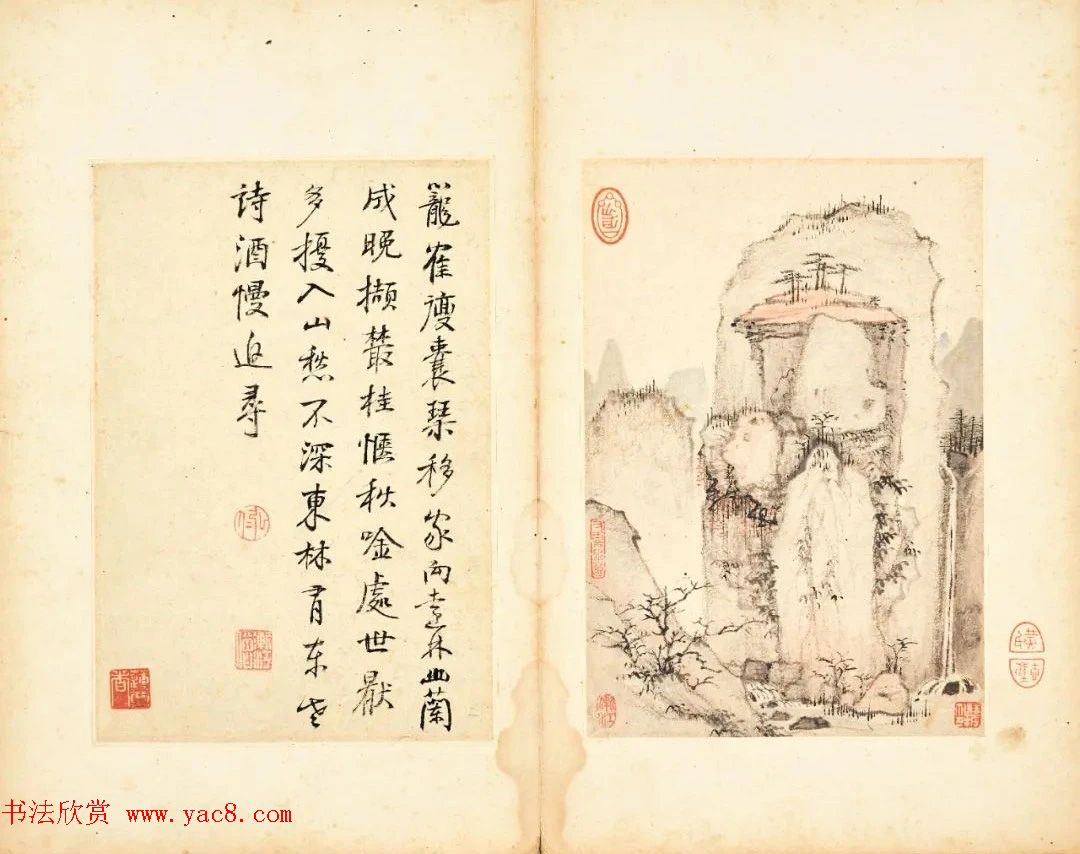 籠隺囊琴移家向遠林幽蘭
成晚擷叢桂愜秋唫處世厭
多擾入山愁不深東林有东老
詩酒慢追尋
书法欣赏 www.yac8.com